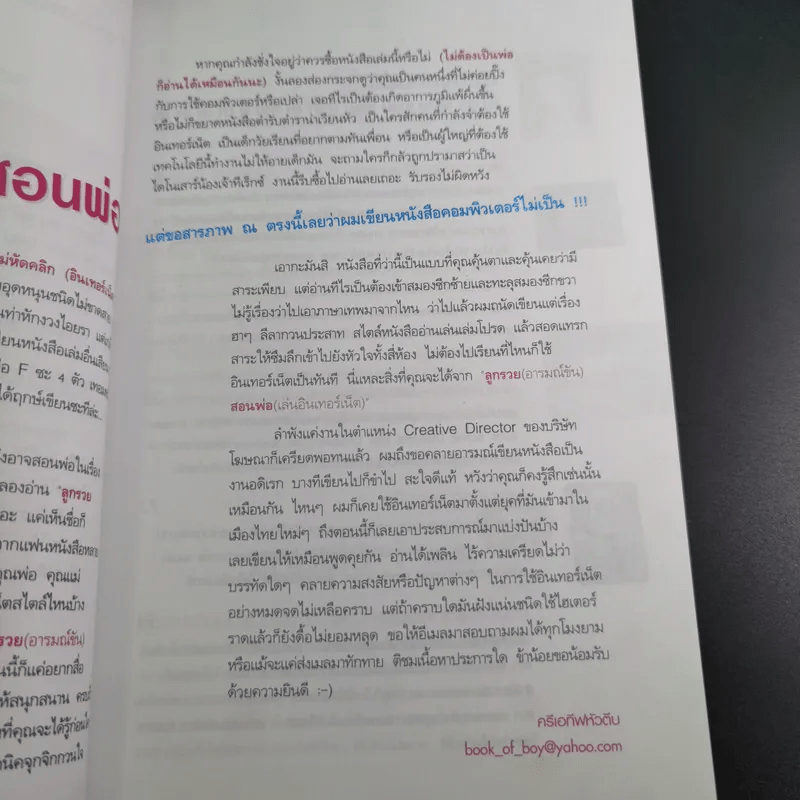 สอนพ่อ
ม่หัดคลิก (อินเทอร์เน็ต
อุดหนุนชนิดไม่ขาดสาย
นท่าหักงวงไอยรา
ขียนหนังสือเล่มอื่น
อ F ซะ 4 ตัว
ได้ฤกษ์เขียนซะทีล่ะ...
ังอาจสอนพ่อในเรื่อง
ลองอ่าน "ลูกรวย
อะ แค่เห็นชื่อก็
จากแฟนหนังสือหลาย
คุณพ่อ คุณแม่
น็ตสไตล์ไหนบ้าง
กรวย(อารมณ์ขัน)
นนี้ก็แค่อยากสื่อ
ห้สนุกสนาน
ที่คุณจะได้รู้ก่อน
นิคจุกจิกกวนใจ
หากคุณกำลังชั่งใจอยู่ว่าควรซื้อหนังสือเล่มนี้หรือไม่ (ไม่ต้องเป็นพ่อ
ก็อ่านได้เหมือนกันนะ) งั้นลองส่องกระจกดูว่าคุณเป็นคนหนึ่งที่ไม่ค่อยปิ๊ง
กับการใช้คอมพิวเตอร์หรือเปล่า เจอทีไรเป็นต้องเกิดอาการภูมิแพ้ผื่นขึ้น
หรือไม่ก็ขยาดหนังสือตำรับตำราน่าเวียนหัว เป็นใครสักคนที่กำลังจำต้องใช้
อินเทอร์เน็ต เป็นเด็กวัยเรียนที่อยากตามทันเพื่อน หรือเป็นผู้ใหญ่ที่ต้องใช้
เทคโนโลยีนี้ทำงานไม่ให้อายเด็กมัน จะถามใครก็กลัวถูกปรามาสว่าเป็น
ไดโนเสาร์น้องเจ้าทีเร็กซ์ งานนี้รีบซื้อไปอ่านเลยเถอะ รับรองไม่ผิดหวัง
แต่ขอสารภาพ ณ ตรงนี้เลยว่าผมเขียนหนังสือคอมพิวเตอร์ไม่เป็น !!!
เอากะมันสิ หนังสือที่ว่านี้เป็นแบบที่คุณคุ้นตาและคุ้นเคยว่ามี
สาระเพียบ แต่อ่านทีไรเป็นต้องเข้าสมองซีกซ้ายและทะลุสมองซีกขวา
ไม่รู้เรื่องว่าไปเอาภาษาเทพมาจากไหน ว่าไปแล้วผมถนัดเขียนแต่เรื่อง
ฮาๆ ลีลากวนประสาท สไตล์หนังสืออ่านเล่นเล่มโปรด แล้วสอดแทรก
สาระให้ซึมลึกเข้าไปยังหัวใจทั้งสี่ห้อง ไม่ต้องไปเรียนที่ไหนก็ใช้
อินเทอร์เน็ตเป็นทันที นี่แหละสิ่งที่คุณจะได้จาก "ลูกรวย(อารมณ์ขัน)
สอนพ่อ(เล่นอินเทอร์เน็ต)"
ลำพังแค่งานในตำแหน่ง Creative Director ของบริษัท
โฆษณาก็เครียดพอทนแล้ว ผมถึงขอคลายอารมณ์เขียนหนังสือเป็น
งานอดิเรก บางทีเขียนไปก็ขำไป สะใจดีแท้ หวังว่าคุณก็คงรู้สึกเช่นนั้น
เหมือนกัน ไหนๆ ผมก็เคยใช้อินเทอร์เน็ตมาตั้งแต่ยุคที่มันเข้ามาใน
เมืองไทยใหม่ๆ ถึงตอนนี้ก็เลยเอาประสบการณ์มาแบ่งปันบ้าง
เลยเขียนให้เหมือนพูดคุยกัน อ่านได้เพลิน ไร้ความเครียดไม่ว่า
บรรทัดใดๆ คลายความสงสัยหรือปัญหาต่างๆ ในการใช้อินเทอร์เน็ต
อย่างหมดจดไม่เหลือคราบ แต่ถ้าคราบใดมันฝังแน่นชนิดใช้ไฮเตอร์
ราดแล้วก็ยังดื้อไม่ยอมหลุด ขอให้อีเมลมาสอบถามผมได้ทุกโมงยาม
หรือแม้จะแค่ส่งเมลมาทักทาย ติชมเนื้อหาประการใด ข้าน้อยขอน้อมรับ
ด้วยความยินดี :-)
ครีเอทีฟหัวตีบ
book_of_boy@yahoo.com